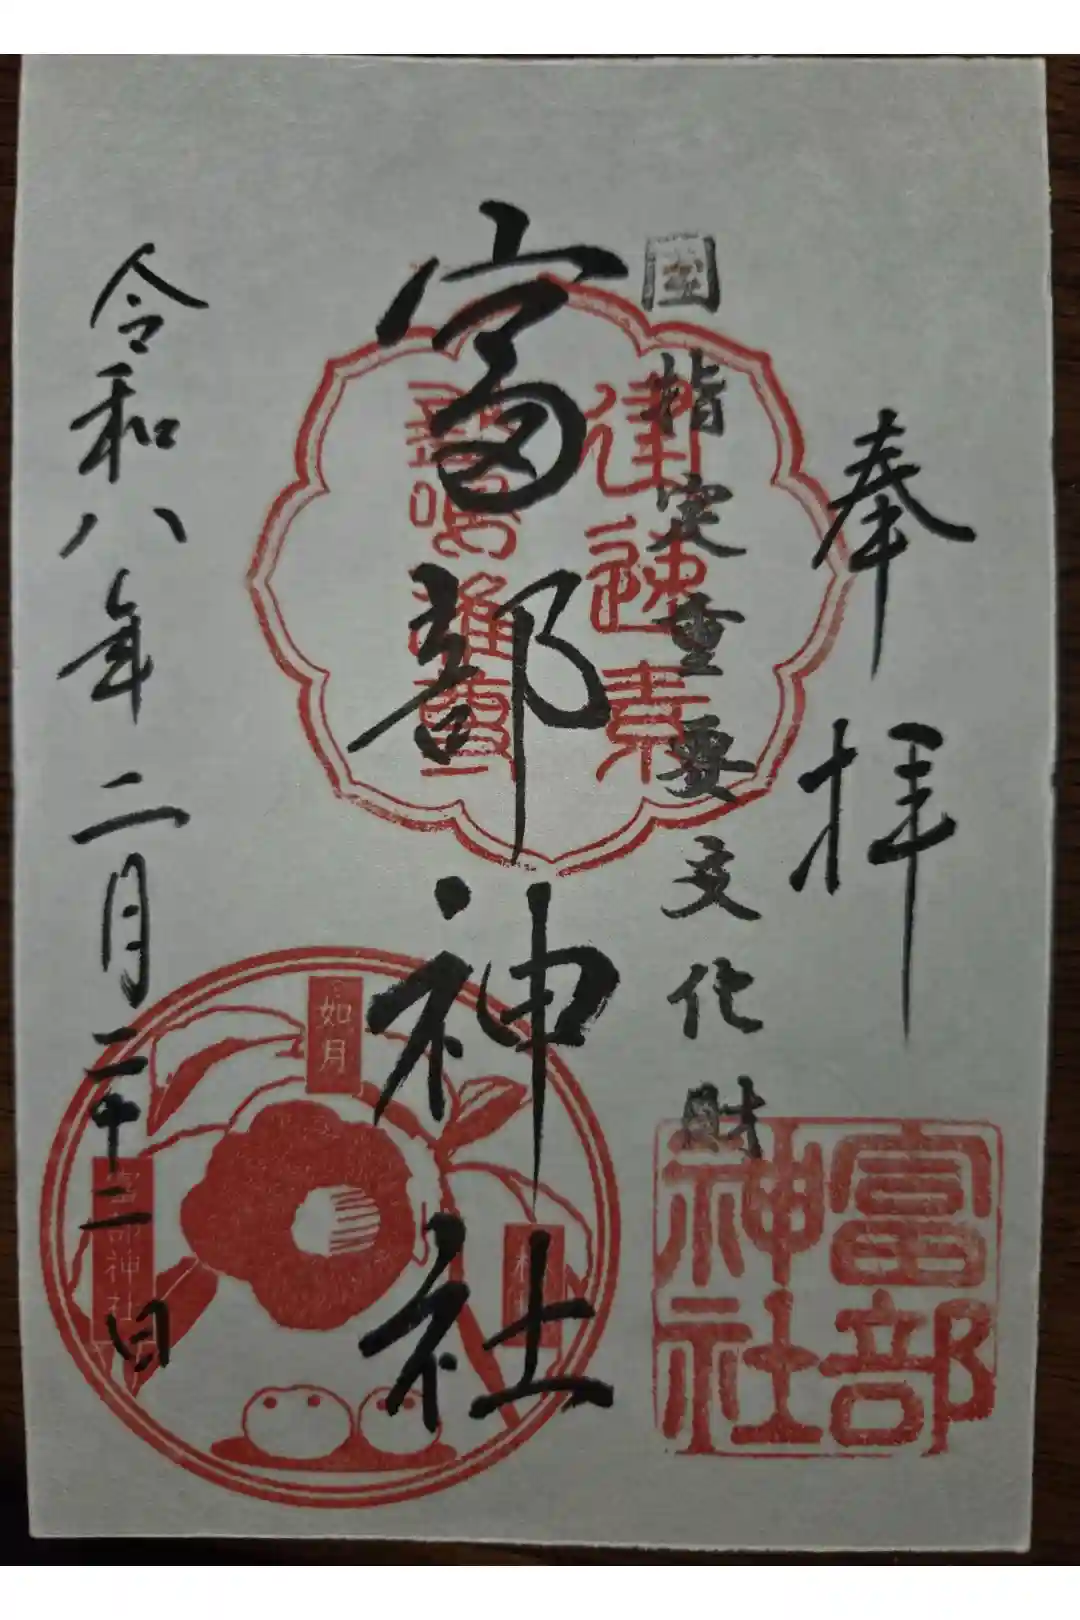 奉拝
国指定重要文化財
建速素
盞嗚雄尊
富部神社
富部
神社
如月
富部神社
令和八年二月二十二日